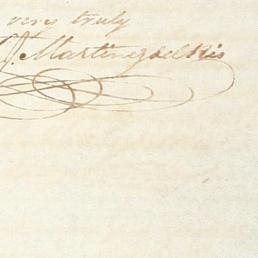 very truly
J. Martinez del Rio